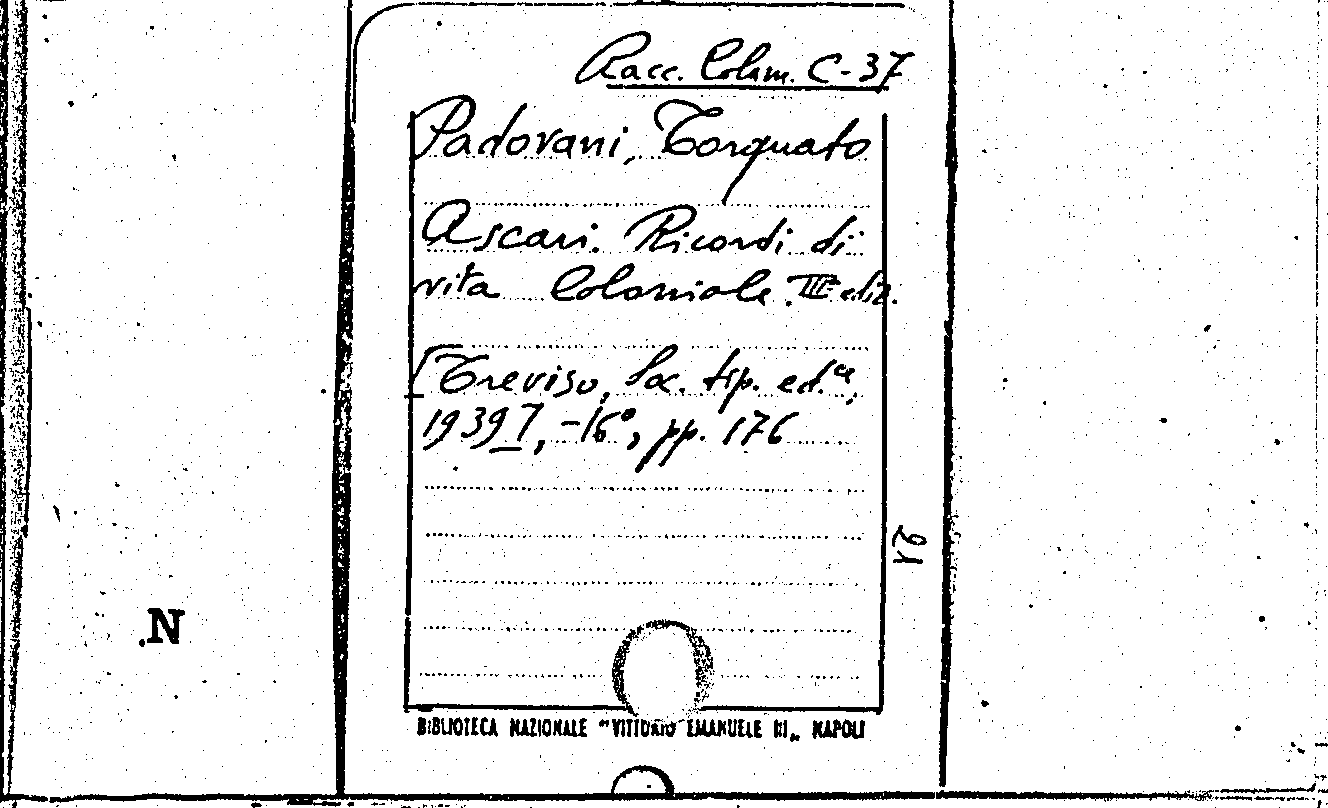 Racc. Colum. C-37
Padovani, Torquato
Ascari. Ricordi di
vita Coloniale. III ediz.
[Treviso, Soc. tip. ed.ce,
1939], -16°, pp. 176
N
BIBLIOTECA NAZIONALE "VITTORIO EMANUELE III„ NAPOLI